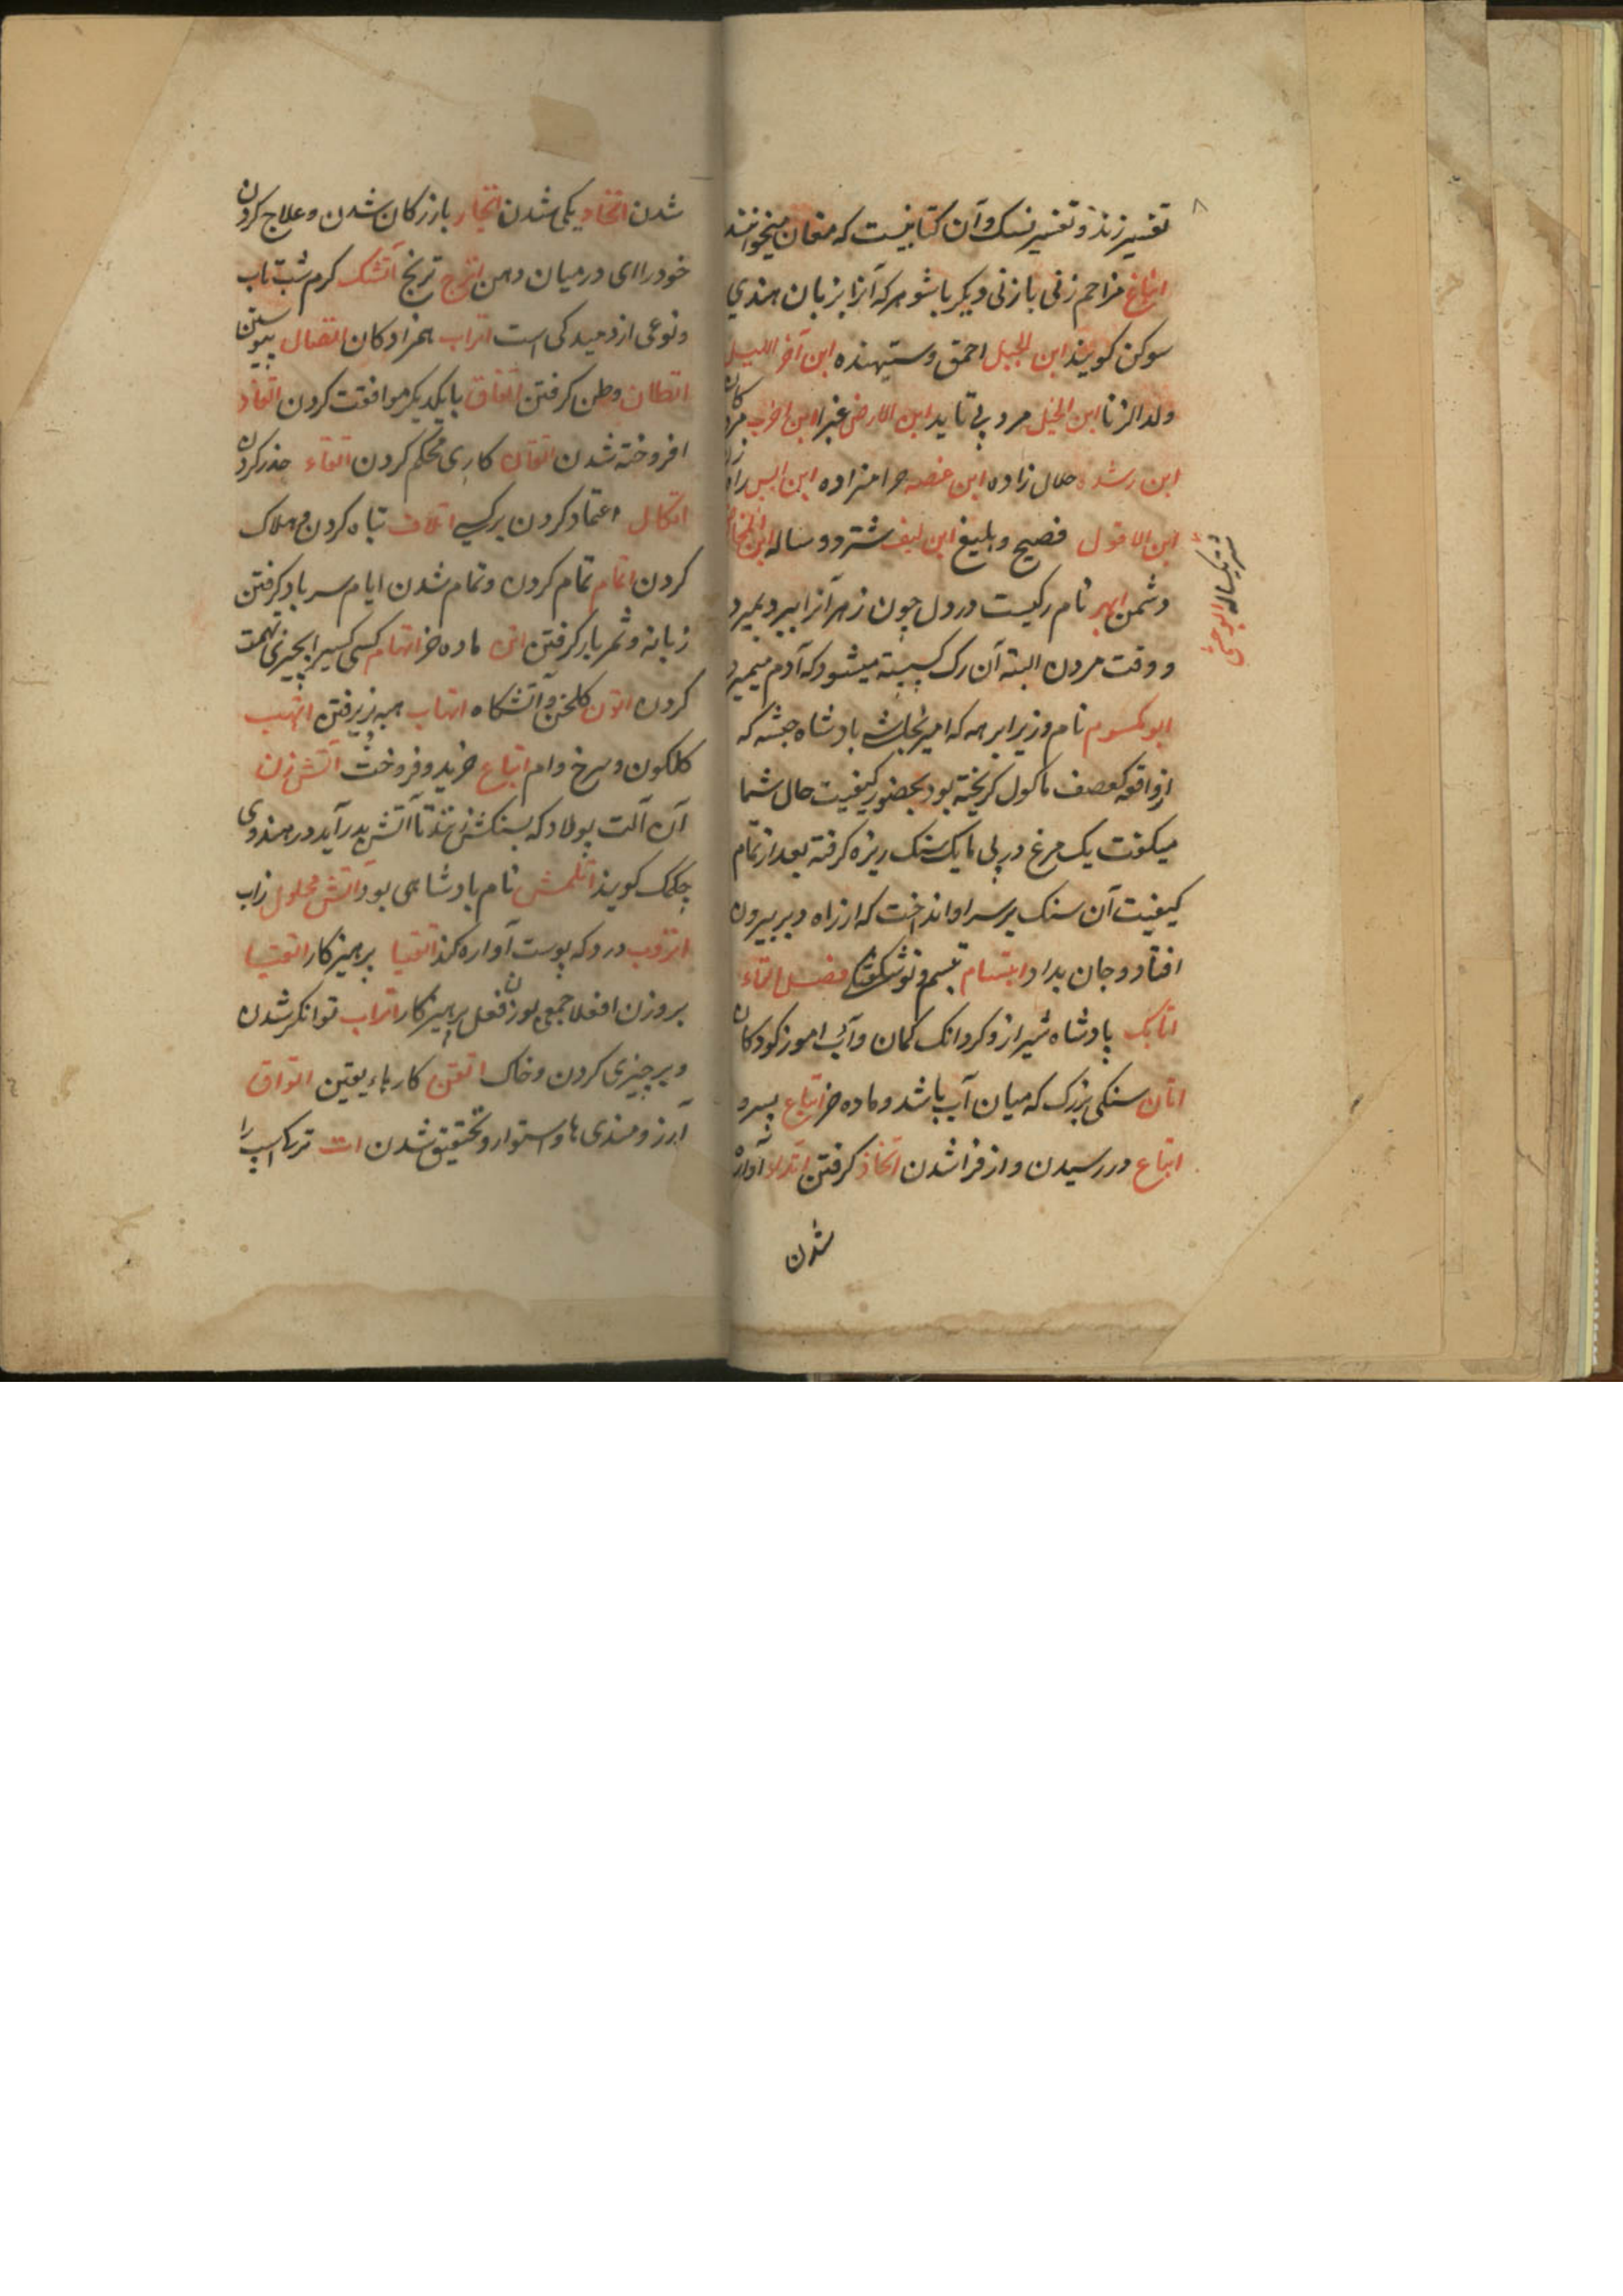 ۸
تفسیر زند و تفسیر نسک و آن کتابیست که مغان میخوانند
انباغ مزاحم زنی با زنی دیکر با شوهر که آنرا بزبان هندی
سوکن کویند ابن الجبل احمق و ستیهنده ابن آخر اللیل
ولد الزنا ابن الخیل مرد بی تاید ابن الارض غبرا ابن اخرب مرد
ابن رشده حلال زاده ابن غصه حرامزاده ابن
ابن الاقول فصیح و بلیغ ابن لیف شتر دو ساله
شتر یکساله
دشمن ابهر نام رکیست در دل چون زهر آنرا ببرد بمیرد
و وقت مردن البته آن رک کسسته میشود که آدم میمیرد
ابو یکسوم نام وزیر ابرهه که امیر نجاشی بادشاه حبشه که
از واقعه کعصف ماکول کریخته بود بحضور کیفیت حال شما
میکفت یک مرغ در پی با یک سنک ریزه کرفته بعد از تمام
کیفیت آن سنک بر سر او انداخت که از راه دبر بیرون
افتاد و جان بداد ابتسام تبسم و نوشکفتکی فصل التاء
اتابک پادشاه شیراز و کردانک کمان و آب اموز کودکان
اتان سنکی بزرک که میان آب باشد و ماده خر اتباع پسرو
اتباع در رسیدن و از فرا شدن اتخاذ کرفتن آواره
شدن
شدن اتحاد یکی شدن اتجار بازرکان شدن و علاج کردن
خود را ای در میان دهن اترج ترنج آتشک کرم شب تاب
و نوعی از دمیدکی است اتراب همزادکان اتصال پیوستن
اتطان وطن کرفتن اتفاق با یکدیکر موافقت کردن اتقاد
افروخته شدن اتقان کاری محکم کردن اتقاء حذر کردن
اتکال اعتماد کردن بر کسی اتلاف تباه کردن و هلاک
کردن اتمام تمام کردن و تمام شدن ایام سر باد کرفتن
زبانه و ثمر بار کرفتن اتن ماده خر اتهام کسی کسیرا بچیزی تهمت
کردن اتون کلخن و آتشکاه اتهاب هبه پزیرفتن اتهب
کلکون و سرخ وام اتباع خرید و فروخت آتش زن
آن آلت پولاد که بسنکش زنند تا آتش بدر آید در هندوی
چکمک کویند اتلمش نام بادشاهی بود آتش محلول زاب
اتروب درد که پوست آواره کند اتقیا پرهیزکار اتقیا
بر وزن افعلا جمع بوزن فعل پرهیزکار اتراب توانکر شدن
و بر چیزی کردن و خاک اتقن کارهاء یقین اتواق
آرزومندی ها و استوار و تحقیق شدن ات ترک اسپ را